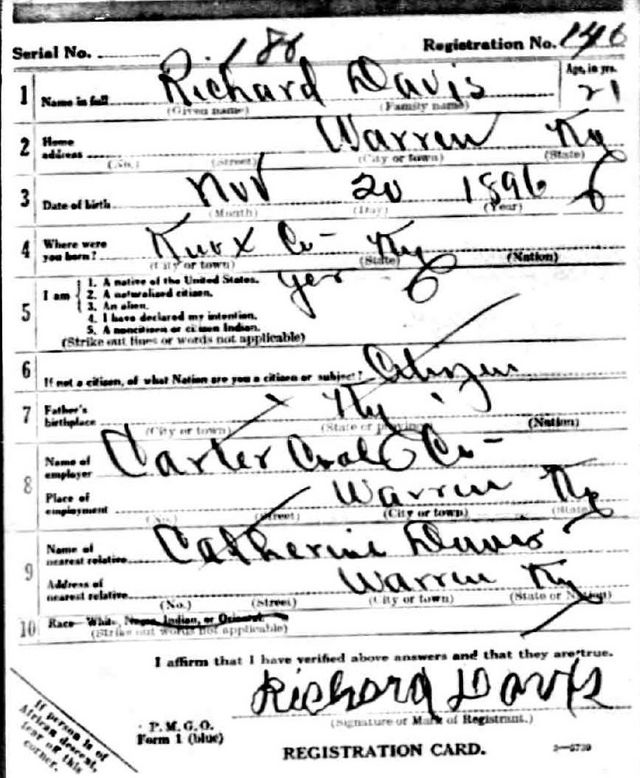 Serial No. 188 Registration No. 146
1 Name in full Richard Davis Age, in yrs. 21
(Given name) (Family name)
2 Home address Warren Ky
(No.) (Street) (City or town) (State)
3 Date of birth Nov 20 1896
(Month) (Day) (Year)
4 Where were you born? Knox Co- Ky
(City or town) (State) (Nation)
5 I am 1. A native of the United States. yes
2. A naturalized citizen.
3. An alien.
4. I have declared my intention.
5. A noncitizen or citizen Indian.
(Strike out lines or words not applicable)
6 If not a citizen, of what Nation are you a citizen or subject? Citizen
7 Father's birthplace Ky
(City or town) (State or province) (Nation)
8 Name of employer Carter Coal Co-
Place of employment Warren Ky
(No.) (Street) (City or town) (State)
9 Name of nearest relative Catherine Davis
Address of nearest relative Warren Ky
(No.) (Street) (City or town) (State or Nation)
10 Race—White, Negro, Indian, or Oriental
(Strike out words not applicable)
I affirm that I have verified above answers and that they are true.
Richard Davis
(Signature or Mark of Registrant.)
P. M. G. O.
Form 1 (blue)
REGISTRATION CARD.
3—5739
If person is of
African descent,
tear off this
corner.